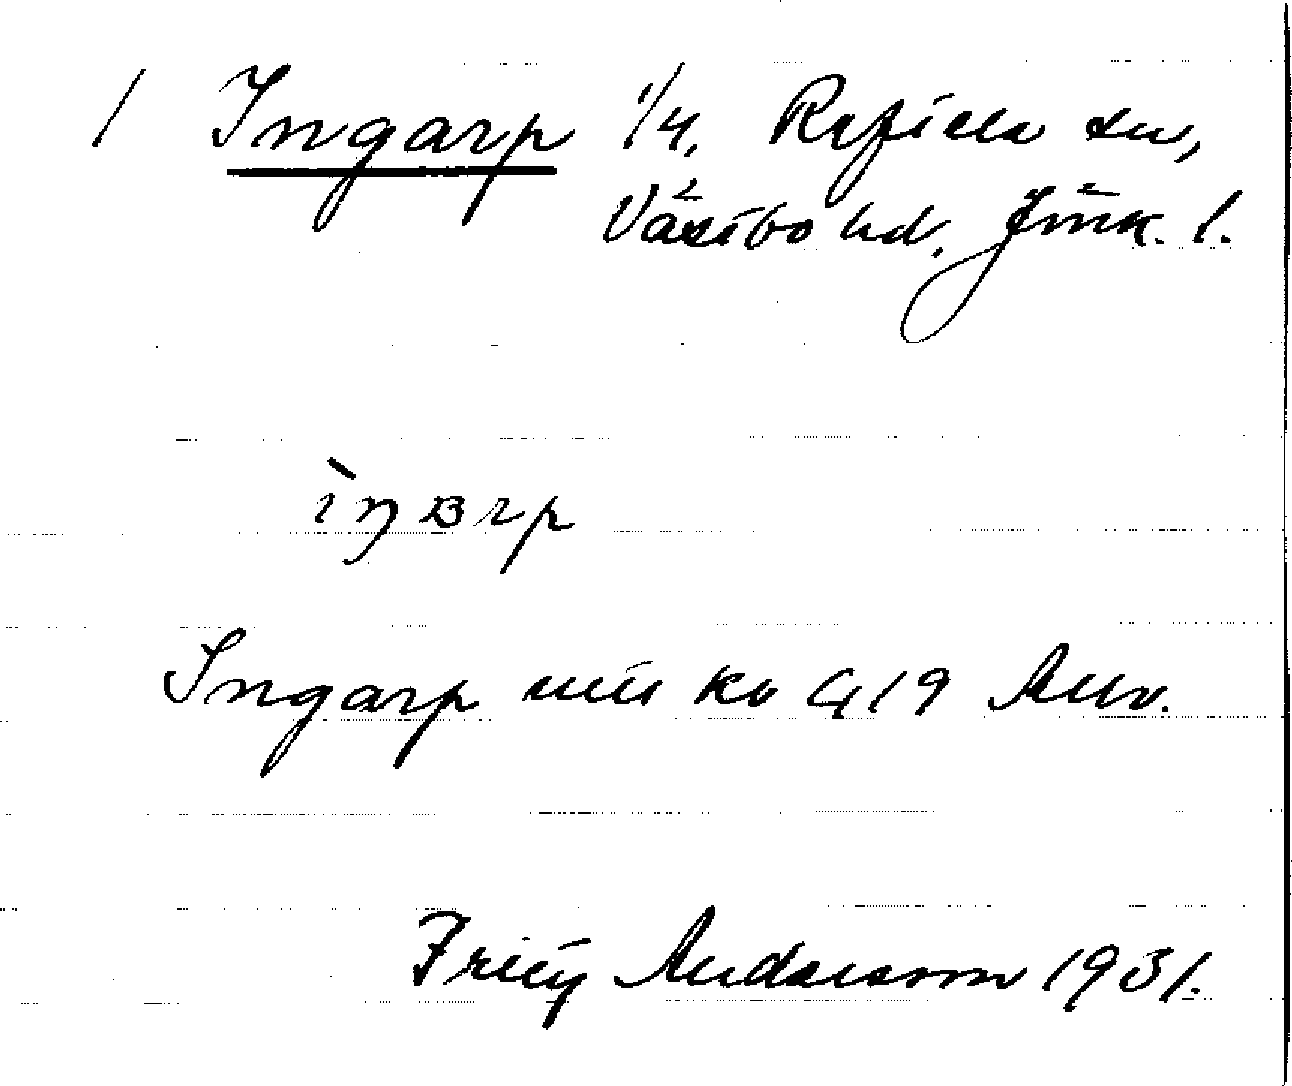 1 Ingarp 1/4, Reftele sn,
Västbo hd, Jönk. l.
ìŋarp
Ingarp utu kv 419 Avv.
Fritz Andersson 1931.